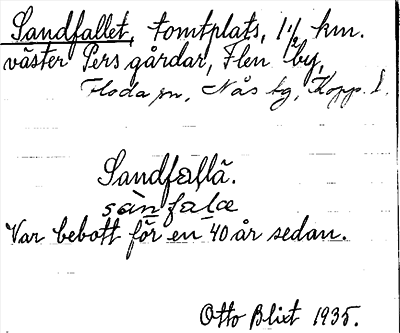 Sandfallet, tomtplats, 1½ km.
väster Pers gårdar, Flen by,
Floda sn, Nås tg, Kopp. l.
Sandfallä.
sànfalæ
Var bebott för en 40 år sedan.
Otto Blixt 1935.